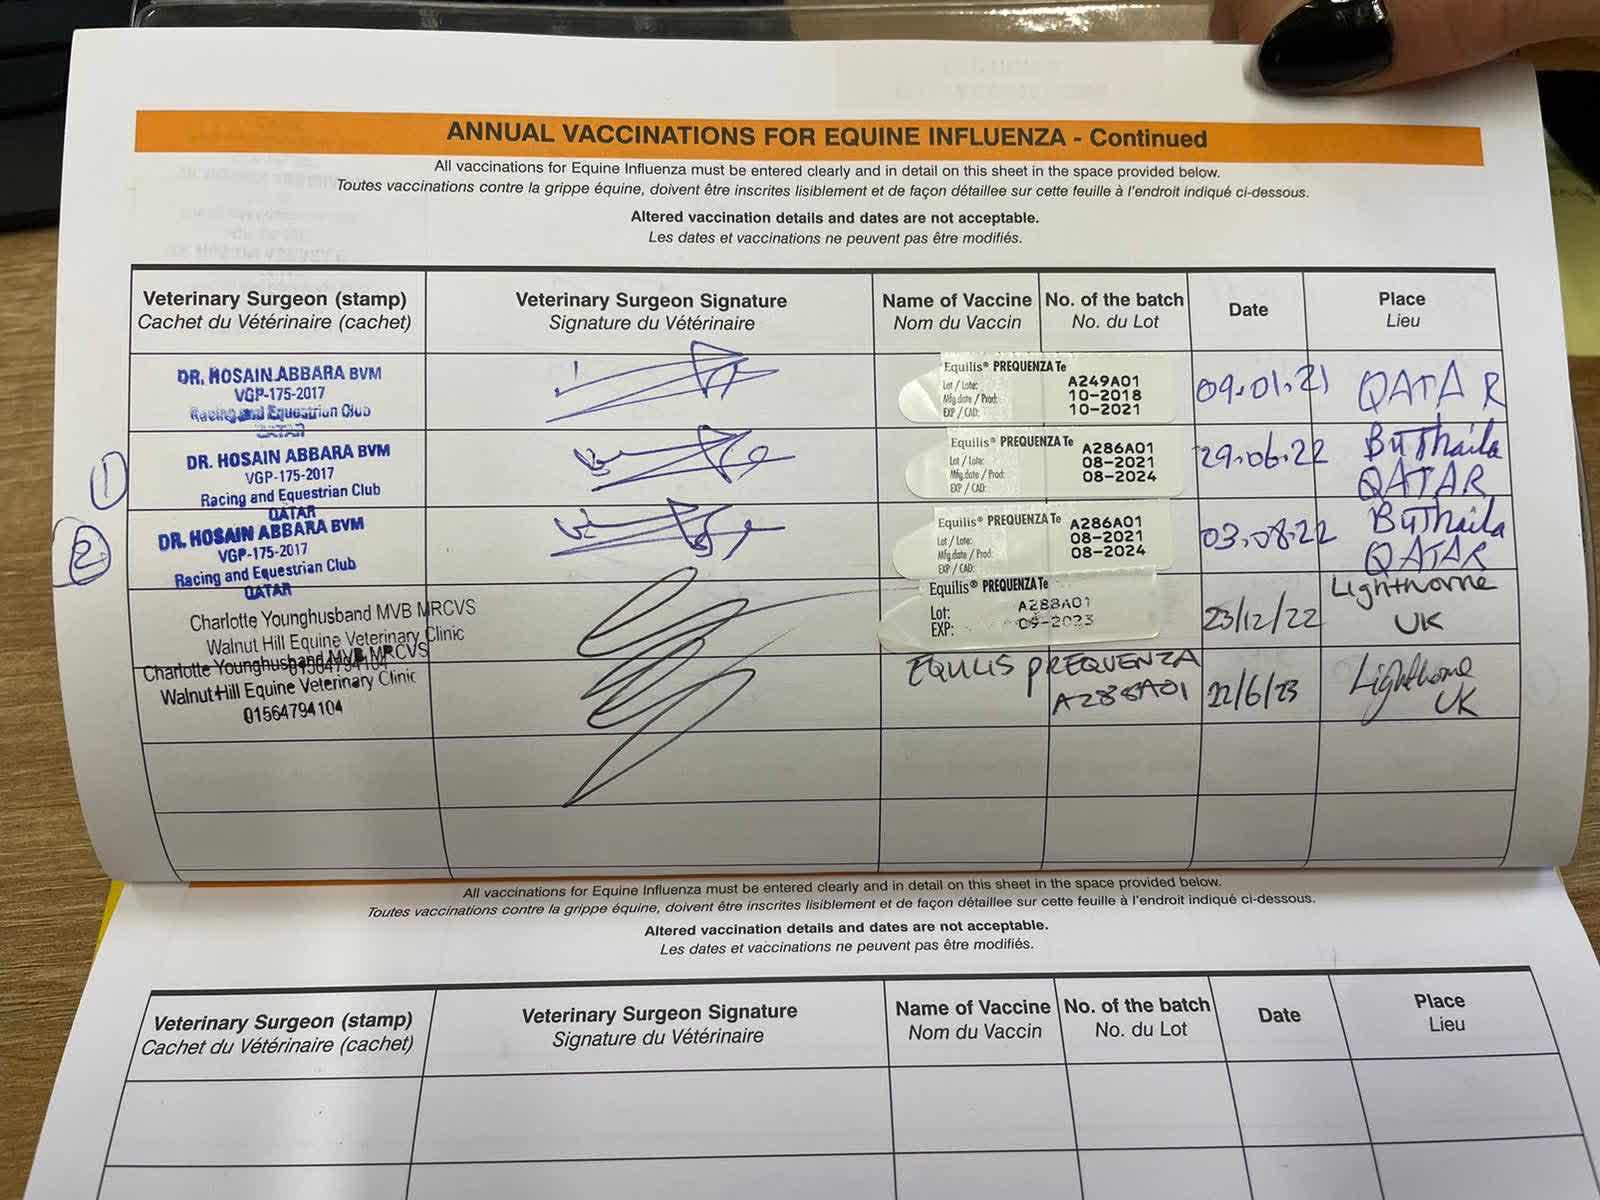 ANNUAL VACCINATIONS FOR EQUINE INFLUENZA - Continued
All vaccinations for Equine Influenza must be entered clearly and in detail on this sheet in the space provided below.
Toutes vaccinations contre la grippe équine, doivent être inscrites lisiblement et de façon détaillee sur cette feuille à l'endroit indiqué ci-dessous.
Altered vaccination details and dates are not acceptable.
Les dates et vaccinations ne peuvent pas être modifiés.
Veterinary Surgeon (stamp) Veterinary Surgeon Signature Name of Vaccine No. of the batch Date Place
Cachet du Vétérinaire (cachet) Signature du Vétérinaire Nom du Vaccin No. du Lot Lieu
DR. HOSAIN ABBARA BVM
VGP-175-2017
Racing and Equestrian Club
QATAR
Equilis® PREQUENZA Te
Lot / Lote: A249A01
Mfg.date / Prod: 10-2018
EXP / CAD: 10-2021
09.01.21
QATAR
1
DR. HOSAIN ABBARA BVM
VGP-175-2017
Racing and Equestrian Club
QATAR
Equilis® PREQUENZA Te
Lot / Lote: A286A01
Mfg.date / Prod: 08-2021
EXP / CAD: 08-2024
29.06.22
Buthaila
QATAR
2
DR. HOSAIN ABBARA BVM
VGP-175-2017
Racing and Equestrian Club
QATAR
Equilis® PREQUENZA Te
Lot / Lote: A286A01
Mfg.date / Prod: 08-2021
EXP / CAD: 08-2024
03.08.22
Buthaila
QATAR
Charlotte Younghusband MVB MRCVS
Walnut Hill Equine Veterinary Clinic
01564794104
Equilis® PREQUENZA Te
Lot: A288A01
EXP: 09-2023
23/12/22
Lighthorne
UK
Charlotte Younghusband MVB MRCVS
Walnut Hill Equine Veterinary Clinic
01564794104
EQUILIS PREQUENZA
A288A01
22/6/23
Lighthorne
UK
All vaccinations for Equine Influenza must be entered clearly and in detail on this sheet in the space provided below.
Toutes vaccinations contre la grippe équine, doivent être inscrites lisiblement et de façon détaillee sur cette feuille à l'endroit indiqué ci-dessous.
Altered vaccination details and dates are not acceptable.
Les dates et vaccinations ne peuvent pas être modifiés.
Veterinary Surgeon (stamp) Veterinary Surgeon Signature Name of Vaccine No. of the batch Date Place
Cachet du Vétérinaire (cachet) Signature du Vétérinaire Nom du Vaccin No. du Lot Lieu